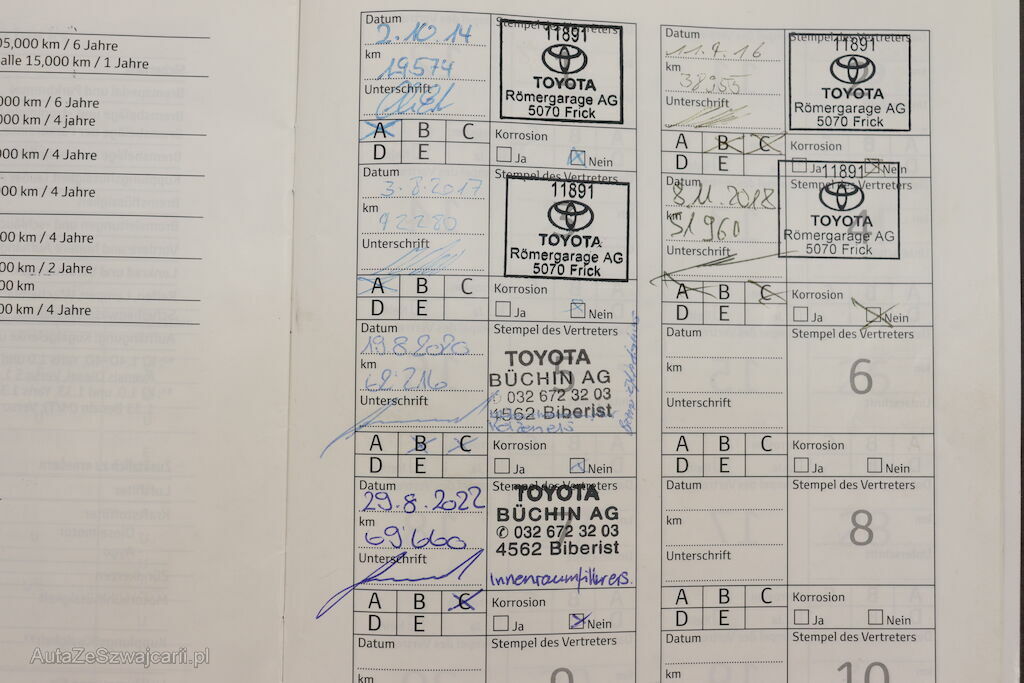 05,000 km / 6 Jahre
alle 15,000 km / 1 Jahre
000 km / 6 Jahre
000 km / 4 jahre
000 km / 4 Jahre
000 km / 4 Jahre
00 km / 4 Jahre
00 km / 2 Jahre
00 km
00 km / 4 Jahre
Datum
2.10.14
km
19574
Unterschrift
Stempel des Vertreters
11891
TOYOTA
Römergarage AG
5070 Frick
A B C
D E
Korrosion
Ja Nein
Datum
11.4.16
km
38955
Unterschrift
Stempel des Vertreters
11891
2
TOYOTA
Römergarage AG
5070 Frick
A B C
D E
Korrosion
Ja Nein
Datum
3.8.2017
km
42280
Unterschrift
Stempel des Vertreters
11891
TOYOTA
Römergarage AG
5070 Frick
A B C
D E
Korrosion
Ja Nein
Datum
8.11.2018
km
51960
Unterschrift
Stempel des Vertreters
11891
4
TOYOTA
Römergarage AG
5070 Frick
A B C
D E
Korrosion
Ja Nein
Datum
19.8.2020
km
Unterschrift
Stempel des Vertreters
5
TOYOTA
BÜCHIN AG
032 672 32 03
4562 Biberist
A B C
D E
Korrosion
Ja Nein
Datum
km
Unterschrift
Stempel des Vertreters
6
A B C
D E
Korrosion
Ja Nein
Datum
29.8.2022
km
69'660
Unterschrift
Stempel des Vertreters
7
TOYOTA
BÜCHIN AG
✆ 032 672 32 03
4562 Biberist
Innenraumfilter ers.
A B C
D E
Korrosion
Ja Nein
Datum
km
Unterschrift
Stempel des Vertreters
8
A B C
D E
Korrosion
Ja Nein
Datum
km
Stempel des Vertreters
9
Datum
km
Stempel des Vertreters
10
AutaZeSzwajcarii.pl